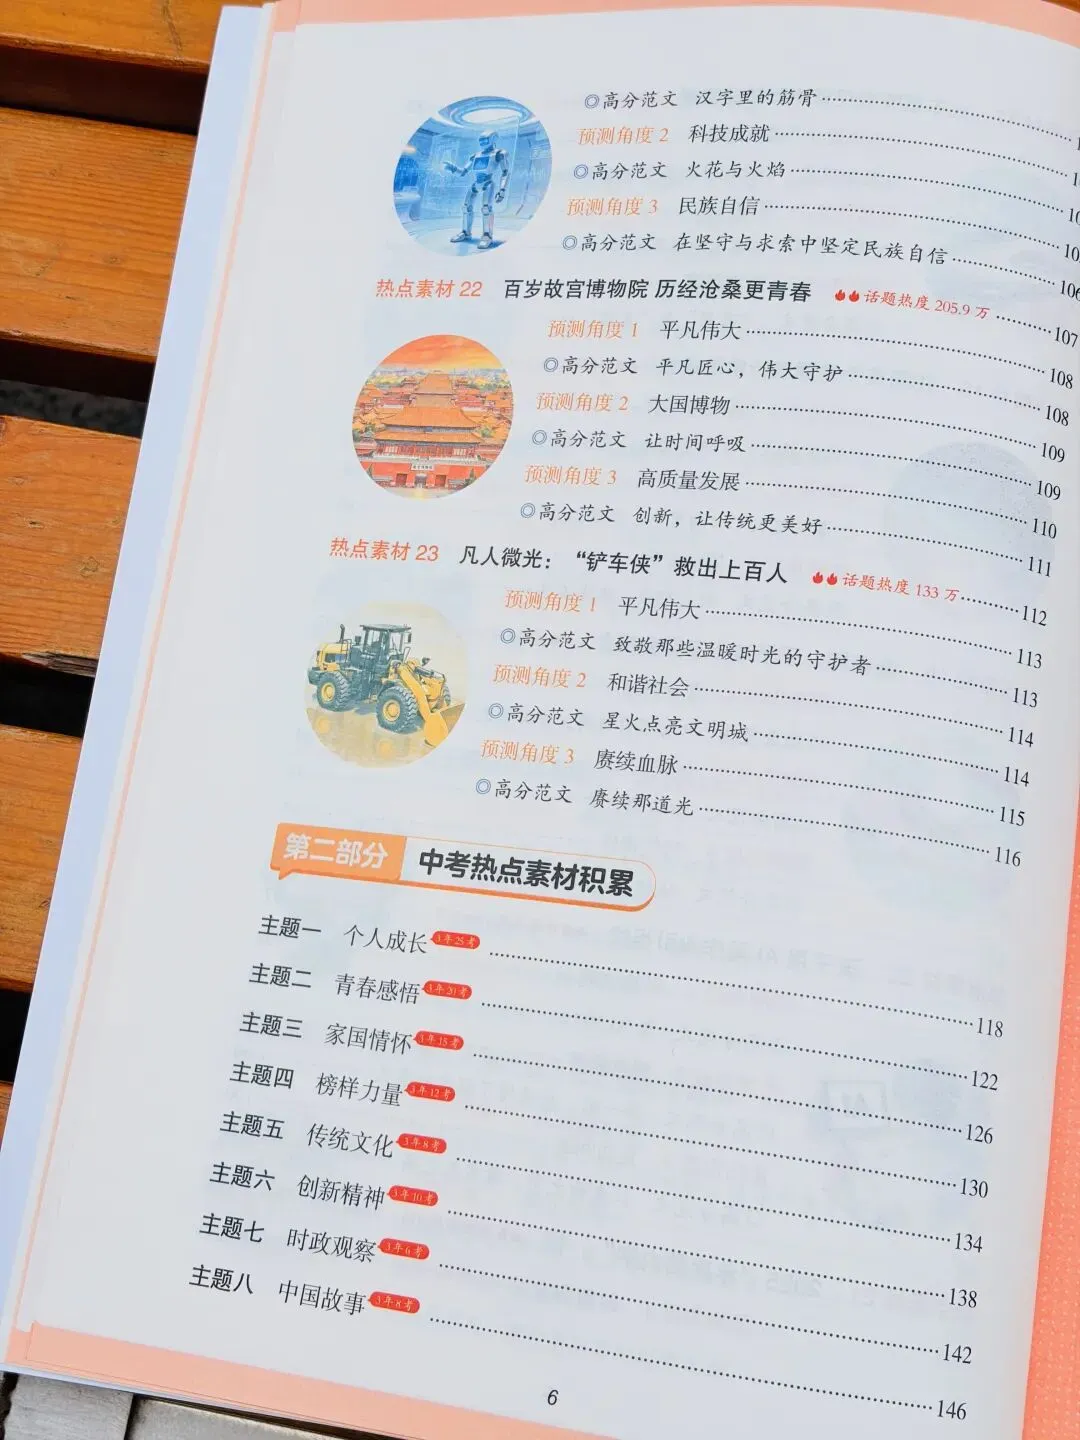 ◎高分范文 汉字里的筋骨
预测角度 2 科技成就
◎高分范文 火花与火焰
预测角度 3 民族自信
◎高分范文 在坚守与求索中坚定民族自信 106
热点素材 22 百岁故宫博物院 历经沧桑更青春 话题热度 205.9 万 107
预测角度 1 平凡伟大 108
◎高分范文 平凡匠心，伟大守护 108
预测角度 2 大国博物 109
◎高分范文 让时间呼吸 109
预测角度 3 高质量发展 110
◎高分范文 创新，让传统更美好 111
热点素材 23 凡人微光：“铲车侠”救出上百人 话题热度 133 万 112
预测角度 1 平凡伟大 113
◎高分范文 致敬那些温暖时光的守护者 113
预测角度 2 和谐社会 114
◎高分范文 星火点亮文明城 114
预测角度 3 赓续血脉 115
◎高分范文 赓续那道光 116
第二部分 中考热点素材积累
主题一 个人成长 3年25考 118
主题二 青春感悟 3年20考 122
主题三 家国情怀 3年15考 126
主题四 榜样力量 3年12考 130
主题五 传统文化 3年8考 134
主题六 创新精神 3年10考 138
主题七 时政观察 3年6考 142
主题八 中国故事 3年8考 146
6